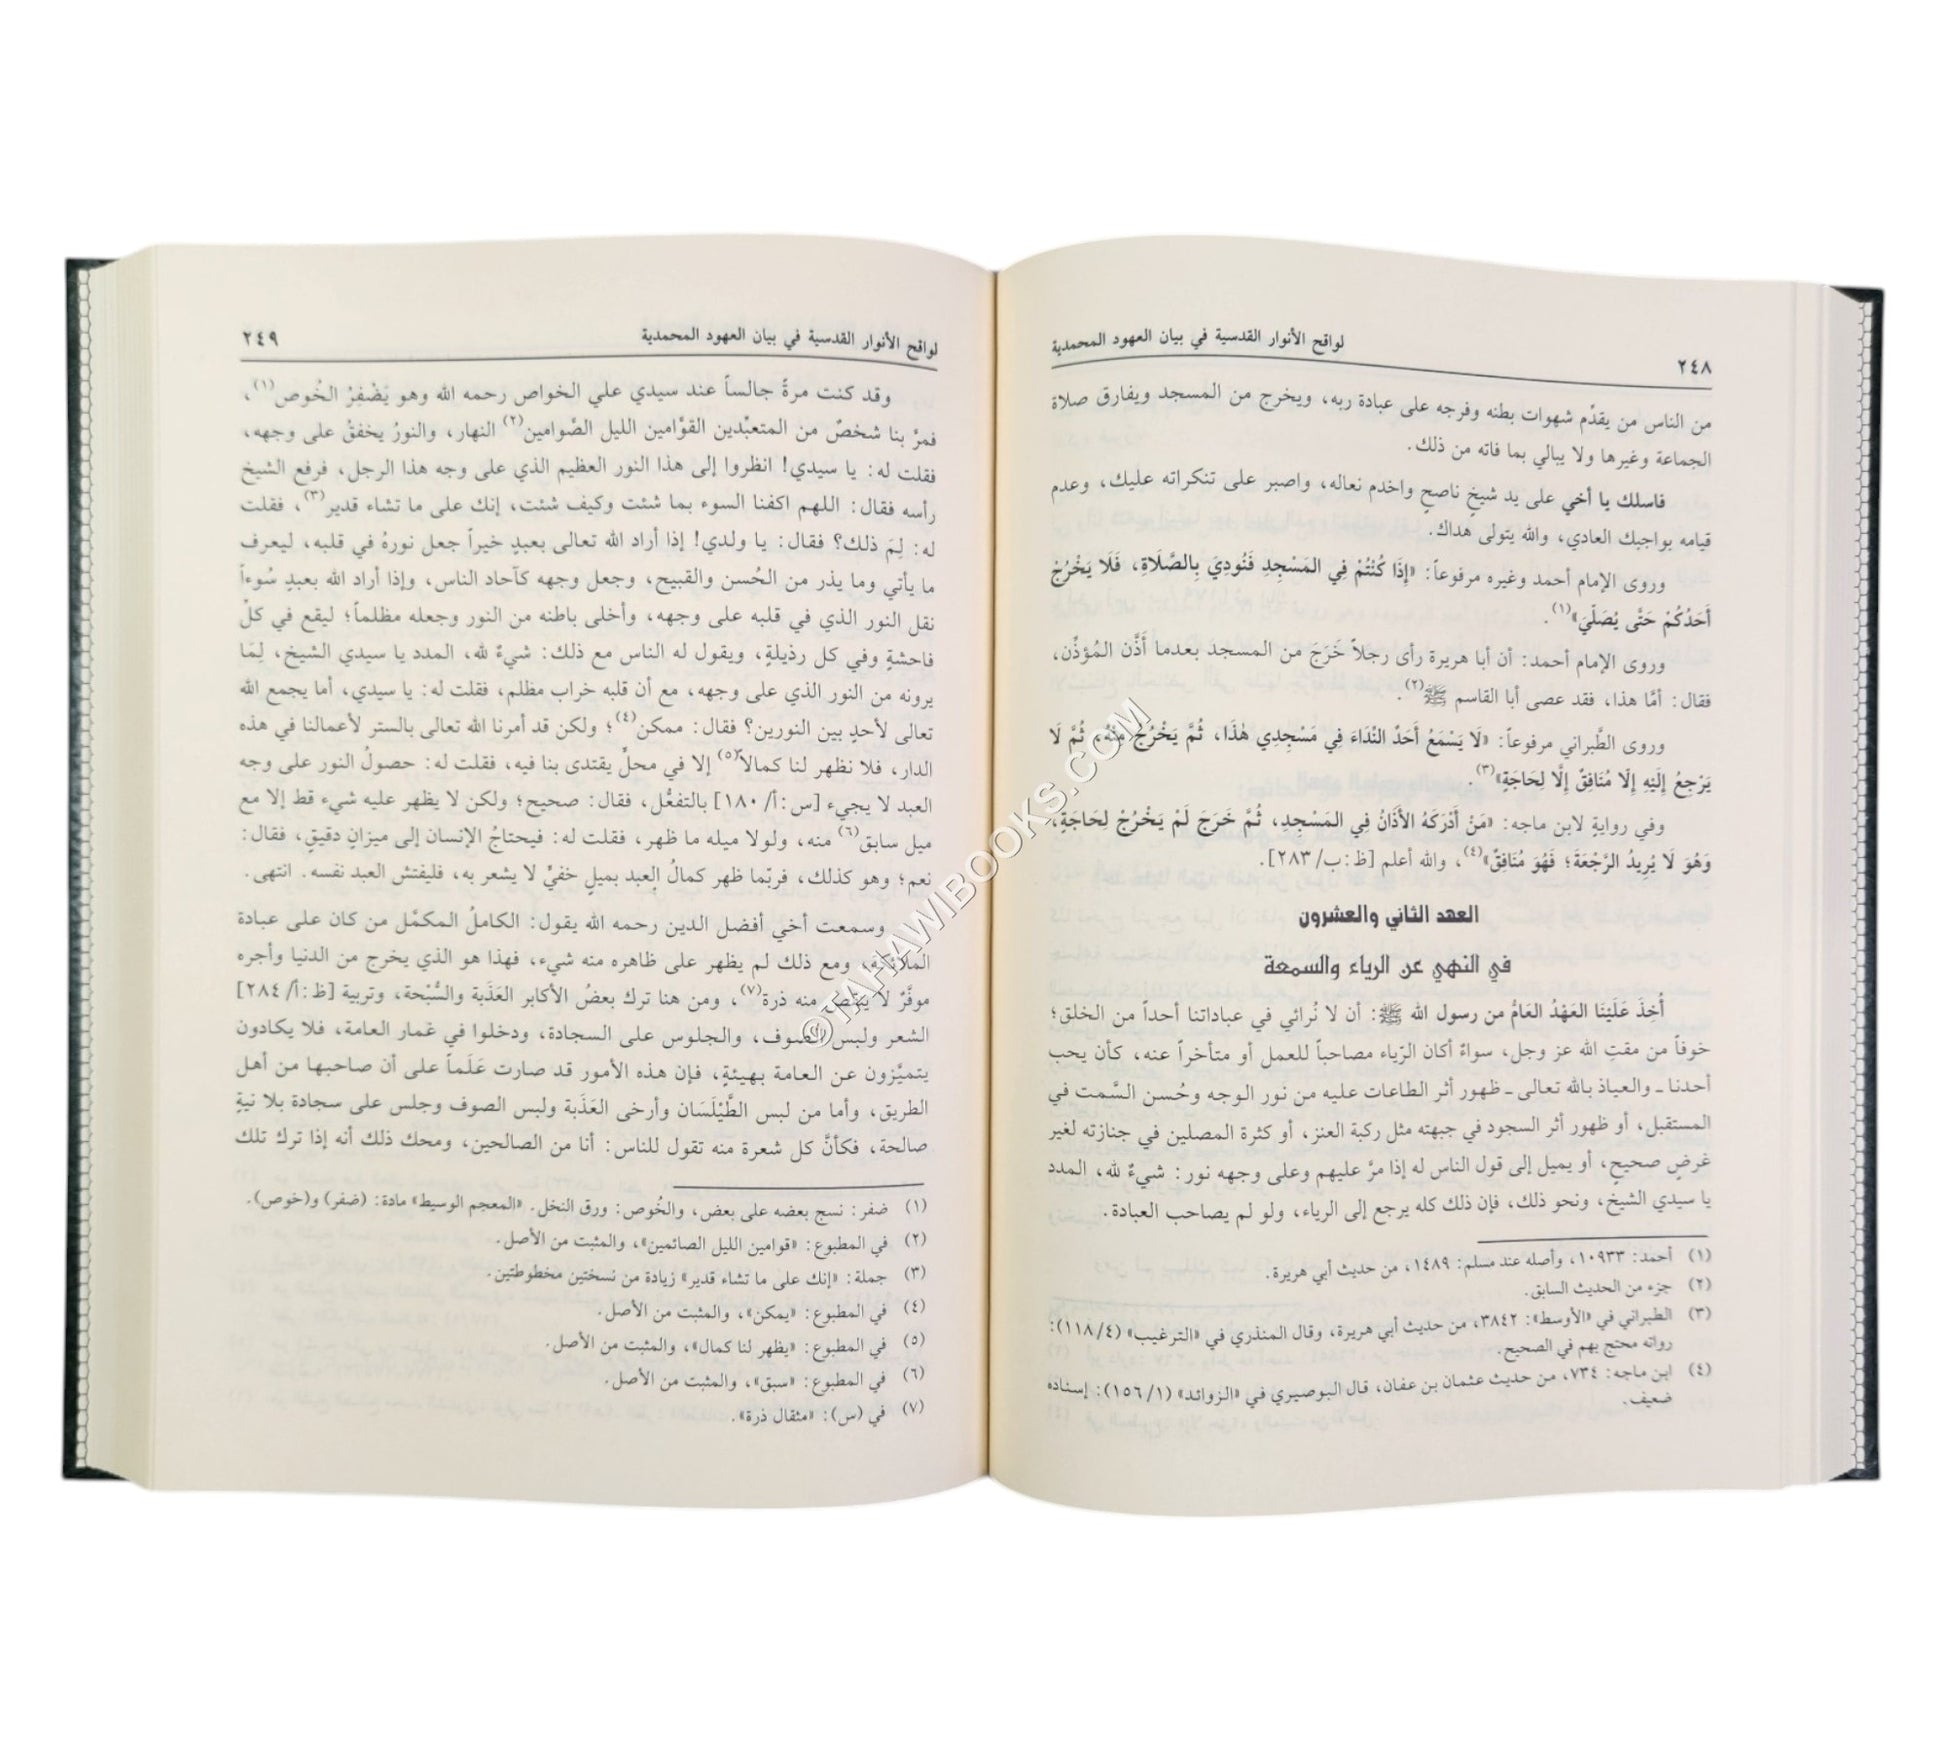 ٢٤٨ لواقح الأنوار القدسية في بيان العهود المحمدية
من الناس من يقدّم شهوات بطنه وفرجه على عبادة ربه، ويخرج من المسجد ويفارق صلاة
الجماعة وغيرها ولا يبالي بما فاته من ذلك.
فاسلك يا أخي على يد شيخٍ ناصحٍ واخدم نعاله، واصبر على تنكراته عليك، وعدم
قيامه بواجبك العادي، والله يتولى هداك.
وروى الإمام أحمد وغيره مرفوعاً: «إِذَا كُنْتُمْ فِي المَسْجِدِ فَنُودِيَ بِالصَّلَاةِ، فَلَا يَخْرُجْ
أَحَدُكُمْ حَتَّى يُصَلِّيَ»(١).
وروى الإمام أحمد: أن أبا هريرة رأى رجلاً خَرَجَ من المسجد بعدما أَذَّن المُؤذِّن،
فقال: أمَّا هذا، فقد عصى أبا القاسم ﷺ(٢).
وروى الطَّبراني مرفوعاً: «لَا يَسْمَعُ أَحَدٌ النِّدَاءَ فِي مَسْجِدِي هٰذَا، ثُمَّ يَخْرُجُ مِنْهُ، ثُمَّ لَا
يَرْجِعُ إِلَيْهِ إِلَّا مُنَافِقٌ إِلَّا لِحَاجَةٍ»(٣).
وفي روايةٍ لابن ماجه: «مَنْ أَدْرَكَهُ الأَذَانُ فِي المَسْجِدِ، ثُمَّ خَرَجَ لَمْ يَخْرُجْ لِحَاجَةٍ،
وَهُوَ لَا يُرِيدُ الرَّجْعَةَ؛ فَهُوَ مُنَافِقٌ»(٤)، والله أعلم [ظ: ب/ ٢٨٣].
العهد الثاني والعشرون
في النهي عن الرياء والسمعة
أُخِذَ عَلَيْنَا العَهْدُ العَامُّ من رسول الله ﷺ: أن لا نُرائي في عباداتنا أحداً من الخلق؛
خوفاً من مقتِ الله عز وجل، سواءٌ أكان الرّياء مصاحباً للعمل أو متأخراً عنه، كأن يحب
أحدنا ـ والعياذ بالله تعالى ـ ظهور أثر الطاعات عليه من نور الوجه وحُسن السَّمت في
المستقبل، أو ظهور أثر السجود في جبهته مثل ركبة العنز، أو كثرة المصلين في جنازته لغير
غرضٍ صحيحٍ، أو يميل إلى قول الناس له إذا مرَّ عليهم وعلى وجهه نور: شيءٌ لله، المدد
يا سيدي الشيخ، ونحو ذلك، فإن ذلك كله يرجع إلى الرياء، ولو لم يصاحب العبادة.
(١) أحمد: ١٠٩٣٣، وأصله عند مسلم: ١٤٨٩، من حديث أبي هريرة.
(٢) جزء من الحديث السابق.
(٣) الطبراني في «الأوسط»: ٣٨٤٢، من حديث أبي هريرة، وقال المنذري في «الترغيب» (٤/ ١١٨):
رواته محتج بهم في الصحيح.
(٤) ابن ماجه: ٧٣٤، من حديث عثمان بن عفان، قال البوصيري في «الزوائد» (١/ ١٥٦): إسناده
ضعيف.
لواقح الأنوار القدسية في بيان العهود المحمدية ٢٤٩
وقد كنت مرةً جالساً عند سيدي علي الخواص رحمه الله وهو يَضْفِرُ الخُوص(١)،
فمرَّ بنا شخصٌ من المتعبِّدين القوَّامين الليل الصَّوامين(٢) النهار، والنورُ يخفقُ على وجهه،
فقلت له: يا سيدي! انظروا إلى هذا النور العظيم الذي على وجه هذا الرجل، فرفع الشيخ
رأسه فقال: اللهم اكفنا السوء بما شئت وكيف شئت، إنك على ما تشاء قدير(٣)، فقلت
له: لِمَ ذلك؟ فقال: يا ولدي! إذا أراد الله تعالى بعبدٍ خيراً جعل نورهُ في قلبه، ليعرف
ما يأتي وما يذر من الحُسن والقبيح، وجعل وجهه كآحاد الناس، وإذا أراد الله بعبدٍ سُوءاً
نقل النور الذي في قلبه على وجهه، وأخلى باطنه من النور وجعله مظلماً؛ ليقع في كلّ
فاحشةٍ وفي كل رذيلةٍ، ويقول له الناس مع ذلك: شيءٌ لله، المدد يا سيدي الشيخ، لِمَا
يرونه من النور الذي على وجهه، مع أن قلبه خراب مظلم، فقلت له: يا سيدي، أما يجمع الله
تعالى لأحدٍ بين النورين؟ فقال: ممكن(٤)؛ ولكن قد أمرنا الله تعالى بالستر لأعمالنا في هذه
الدار، فلا نظهر لنا كمالاً(٥) إلا في محلٍّ يقتدى بنا فيه، فقلت له: حصولُ النور على وجه
العبد لا يجيء [س: أ/ ١٨٠] بالتفعُّل، فقال: صحيح؛ ولكن لا يظهر عليه شيء قط إلا مع
ميل سابق(٦) منه، ولولا ميله ما ظهر، فقلت له: فيحتاجُ الإنسان إلى ميزانٍ دقيقٍ، فقال:
نعم؛ وهو كذلك، فربّما ظهر كمالُ العبد بميلٍ خفيٍّ لا يشعر به، فليفتش العبد نفسه. انتهى.
وسمعت أخي أفضل الدين رحمه الله يقول: الكاملُ المكمَّل من كان على عبادة
الملائكة، ومع ذلك لم يظهر على ظاهره منه شيء، فهذا هو الذي يخرج من الدنيا وأجره
موفَّرٌ لا ينقص منه ذرة(٧)، ومن هنا ترك بعضُ الأكابر العَذَبة والسُّبْحة، وتربية [ظ: أ/ ٢٨٤]
الشعر ولبس الصوف، والجلوس على السجادة، ودخلوا في غمار العامة، فلا يكادون
يتميَّزون عن العامة بهيئةٍ، فإن هذه الأمور قد صارت عَلَماً على أن صاحبها من أهل
الطريق، وأما من لبس الطَّيْلَسَان وأرخى العَذَبة ولبس الصوف وجلس على سجادة بلا نيةٍ
صالحة، فكأنَّ كل شعرة منه تقول للناس: أنا من الصالحين، ومحك ذلك أنه إذا ترك تلك
(١) ضفر: نسج بعضه على بعض، والخُوص: ورق النخل. «المعجم الوسيط» مادة: (ضفر) و(خوص).
(٢) في المطبوع: «قوامين الليل الصائمين»، والمثبت من الأصل.
(٣) جملة: «إنك على ما تشاء قدير» زيادة من نسختين مخطوطتين.
(٤) في المطبوع: «يمكن»، والمثبت من الأصل.
(٥) في المطبوع: «يظهر لنا كمال»، والمثبت من الأصل.
(٦) في المطبوع: «سبق»، والمثبت من الأصل.
(٧) في (س): «مثقال ذرة».
©TAHAWIBOOKS.COM